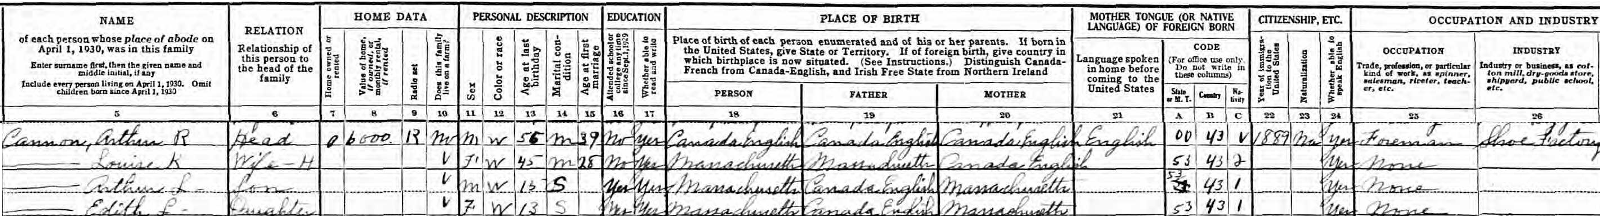 NAME
of each person whose place of abode on April 1, 1930, was in this family
Enter surname first, then the given name and middle initial, if any
Include every person living on April 1, 1930. Omit children born since April 1, 1930
RELATION
Relationship of this person to the head of the family
HOME DATA
Home owned or rented
Value of home, if owned, or monthly rental, if rented
Radio set
Does this family live on a farm?
PERSONAL DESCRIPTION
Sex
Color or race
Age at last birthday
Marital condition
Age at first marriage
EDUCATION
Attended school or college any time since Sept. 1, 1929
Whether able to read and write
PLACE OF BIRTH
Place of birth of each person enumerated and of his or her parents. If born in the United States, give State or Territory. If of foreign birth, give country in which birthplace is now situated. (See Instructions.) Distinguish Canada-French from Canada-English, and Irish Free State from Northern Ireland
PERSON
FATHER
MOTHER
MOTHER TONGUE (OR NATIVE LANGUAGE) OF FOREIGN BORN
Language spoken in home before coming to the United States
CODE
(For office use only. Do not write in these columns)
State or M. T.
Country
Nativity
CITIZENSHIP, ETC.
Year of immigration to the United States
Naturalization
Whether able to speak English
OCCUPATION AND INDUSTRY
OCCUPATION
Trade, profession, or particular kind of work, as spinner, salesman, riveter, teacher, etc.
INDUSTRY
Industry or business, as cotton mill, dry-goods store, shipyard, public school, etc.
5 6 7 8 9 10 11 12 13 14 15 16 17 18 19 20 21 A B C 22 23 24 25 26
Cannon, Arthur R Head O 6000 R No M W 56 M 39 No Yes Canada English Canada English Canada English English 00 43 V 1889 Na Yes Foreman Shoe Factory
Louise K Wife-H V F W 45 M 28 No Yes Massachusetts Massachusetts Canada English 53 43 2 Yes None
Arthur L Son V M W 15 S Yes Yes Massachusetts Canada English Massachusetts 53 43 1 Yes None
Edith L Daughter V F W 13 S Yes Yes Massachusetts Canada English Massachusetts 53 43 1 Yes None